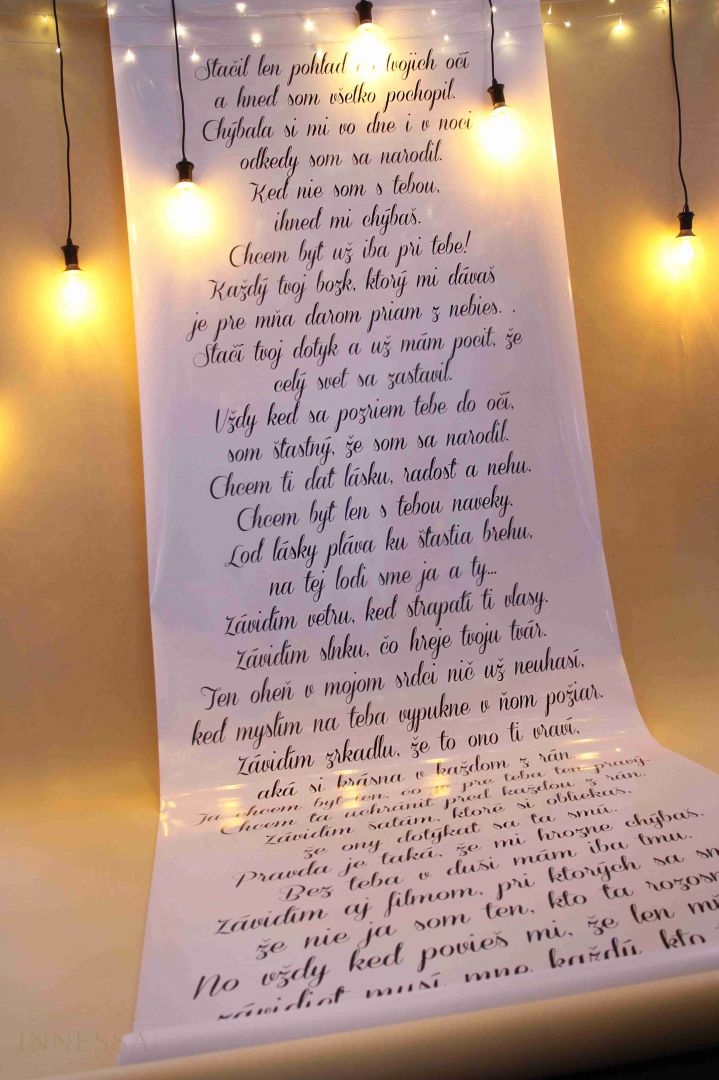 Stačil len pohľad tvojich očí
a hneď som všetko pochopil.
Chýbala si mi vo dne i v noci
odkedy som sa narodil.
Keď nie som s tebou,
ihneď mi chýbaš.
Chcem byť už iba pri tebe!
Každý tvoj bozk, ktorý mi dávaš
je pre mňa darom priam z nebies. .
Stačí tvoj dotyk a už mám pocit, že
celý svet sa zastavil.
Vždy keď sa pozriem tebe do očí,
som šťastný, že som sa narodil.
Chcem ti dať lásku, radosť a nehu.
Chcem byť len s tebou naveky.
Loď lásky pláva ku šťastia brehu,
na tej lodi sme ja a ty...
Závidím vetru, keď strapatí ti vlasy.
Závidím slnku, čo hreje tvoju tvár.
Ten oheň v mojom srdci nič už neuhasí,
keď myslím na teba vypukne v ňom požiar.
Závidím zrkadlu, že to ono ti vraví,
aká si krásna v každom z rán.
Ja chcem byť ten, čo je pre teba ten pravý.
Chcem ťa uchrániť pred každou z rán.
Závidím šatám, ktoré si obliekaš,
že ony dotýkať sa ťa smú.
Pravda je taká, že mi hrozne chýbaš.
Bez teba v duši mám iba tmu.
Závidím aj filmom, pri ktorých sa
že nie ja som ten, kto ťa
No vždy keď povieš mi, že len
závidieť musí mne každý, kto
INNESSA